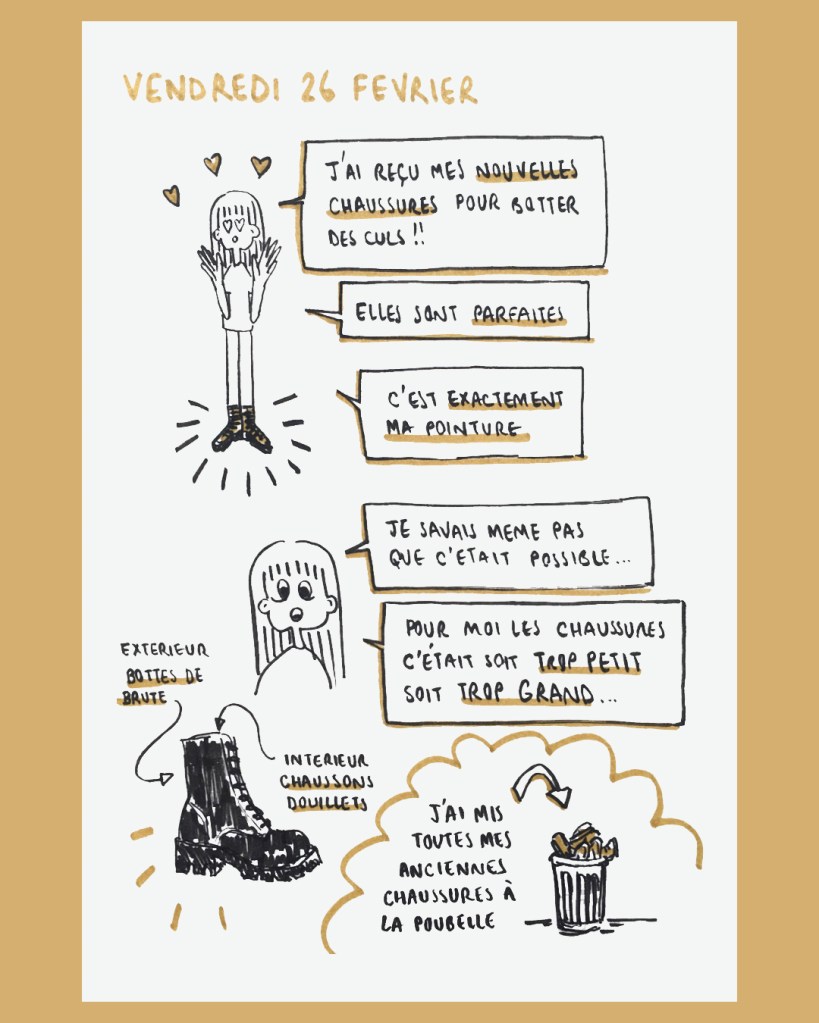 VENDREDI 26 FEVRIER
J'AI REÇU MES NOUVELLES
CHAUSSURES POUR BOTTER
DES CULS !!
ELLES SONT PARFAITES
C'EST EXACTEMENT
MA POINTURE
JE SAVAIS MEME PAS
QUE C'ETAIT POSSIBLE...
POUR MOI LES CHAUSSURES
C'ÉTAIT SOIT TROP PETIT
SOIT TROP GRAND...
EXTERIEUR
BOTTES DE
BRUTE
INTERIEUR
CHAUSSONS
DOUILLETS
J'AI MIS
TOUTES MES
ANCIENNES
CHAUSSURES À
LA POUBELLE